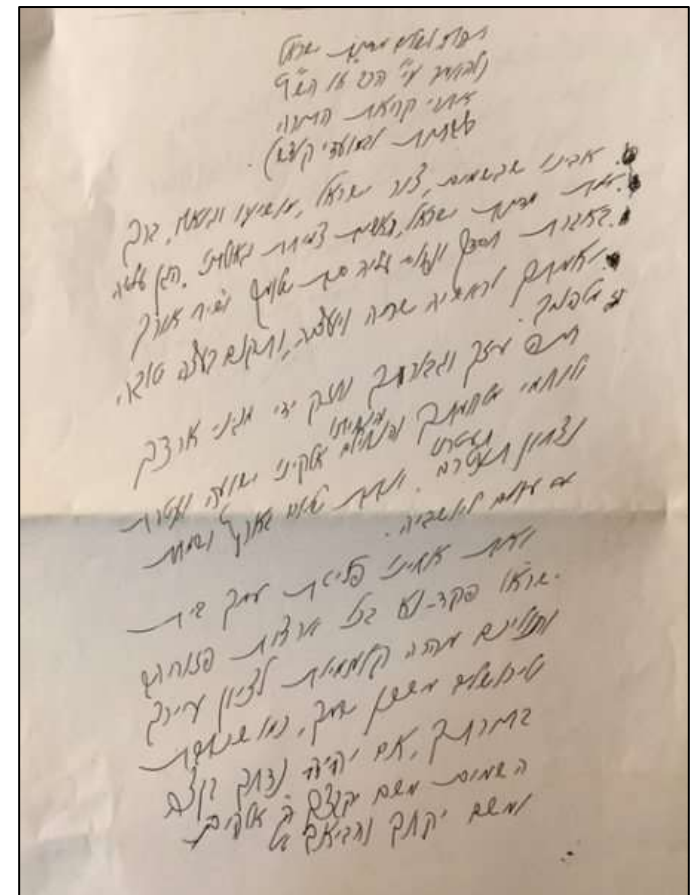 תפלה לשלום מדינת ישראל
אחרי קריאת התורה
בשבתות ובמועדי קדש).
אבינו שבשמים, צור ישראל, מושיעו וגואלו, ברך
את מדינת ישראל, ראשית צמיחת גאולתנו. הגן עליה
באברת חסדך ופרוס עליה סכת שלומך ושלח אורך
ואמתך לראשיה שריה ויועציה, ותקנם בעצה טובה
מלפניך.
וגבורתך וחזק ידי מגיני ארצך
ולוחמי מלחמתך והנחילם אלקינו ישועה ועטרת
נצחון תעטרם. ונתת שלום בארץ ושמחת
עולם ליושביה.
ואת אחינו פליטת עמך בית
ישראל פקד-נא בכל ארצות פזוריהם
ותוליכם מהרה קוממיות לציון עירך
ולירושלים משכן שמך, כמו שנאמר
בתורתך, אם יהיה נדחך בקצה
השמים משם יקבצך ה' אלקיך
ומשם יקחך והביאך